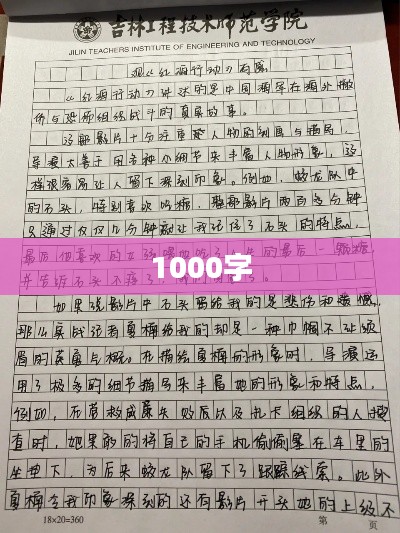 吉林工程技术师范学院
JILIN TEACHERS INSTITUTE OF ENGINEERING AND TECHNOLOGY
观《红海行动》有感
《红海行动》讲述的是中国海军在海外撤
侨与恐怖组织战斗的真实故事。
这部影片十分注重人物的刻画与描写,
导演太善于用各种小细节来丰富人物形象,这
样很容易让人留下深刻印象。例如,蛟龙队中
的石头,特别喜欢吃糖,整部影片两百多分钟
只通过仅仅几分钟就让我记住了石头的特点,
最后
1000字
如果说影片中石头留给我的是悲伤和遗憾,
那么实战记者夏楠给我的却是一种巾帼不让须
眉的英雄气概。在描绘夏楠的形象时,导演运
用了极多的细节描写来丰富她的形象和特点,
例如,
查时,她果敢的将自己的手机偷偷塞在车里的
坐垫下,为后来蛟龙队留下了跟踪线索。此外
夏楠令我印象深刻的还有影片开头她的上级不
18×20=360
第 页